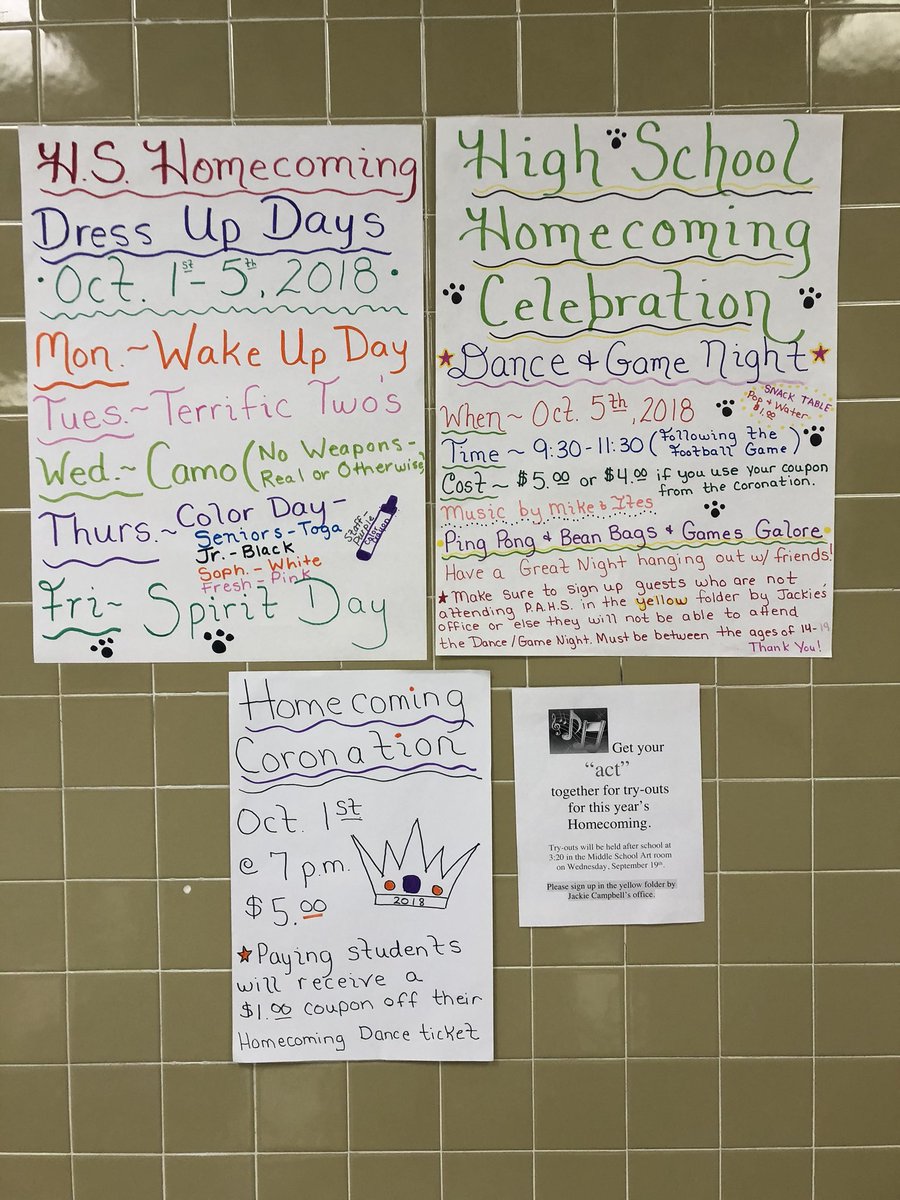 H.S. Homecoming
Dress Up Days
Oct. 1st - 5th, 2018
Mon. ~ Wake Up Day
Tues. ~ Terrific Two's
Wed. ~ Camo (No Weapons -
Real or Otherwise)
Thurs. ~ Color Day -
Seniors - Toga
Jr. - Black
Soph. - White
Fresh - Pink
Staff -
Purple
Fri ~ Spirit Day
High School
Homecoming
Celebration
Dance & Game Night
SNACK TABLE
Pop & Water
$1.00
When ~ Oct. 5th, 2018
Time ~ 9:30 - 11:30 (Following the
Football Game)
Cost ~ $5.00 or $4.00 if you use your coupon
from the coronation.
Music by Mike & Ites
Ping Pong & Bean Bags & Games Galore
Have a Great Night hanging out w/ friends!
Make sure to sign up guests who are not
attending P.A.H.S. in the yellow folder by Jackie's
office or else they will not be able to attend
the Dance/Game Night. Must be between the ages of 14-19
Thank You!
Homecoming
Coronation
Oct. 1st
@ 7 p.m.
$5.00
2018
Paying students
will receive a
$1.00 coupon off their
Homecoming Dance ticket
Get your
"act"
together for try-outs
for this year's
Homecoming.
Try-outs will be held after school at
3:20 in the Middle School Art room
on Wednesday, September 19th.
Please sign up in the yellow folder by
Jackie Campbell's office.